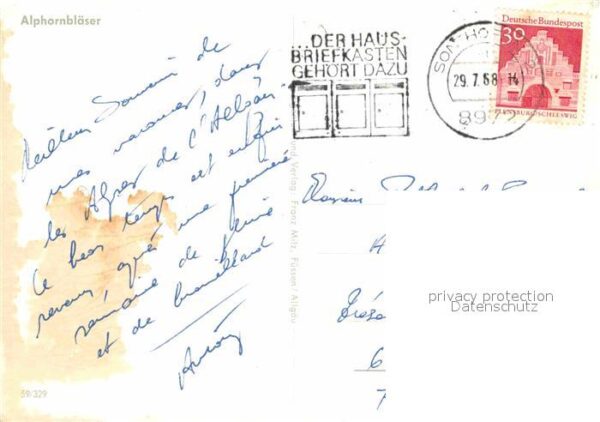 Alphornbläser
Meilleur Souvenir de
mes vacances, dans
les Alpes de l'Allgäu
Le beau temps est enfin
revenu, après une première
semaine de pluie
et de brouillard
59/329
Verlag Franz Milz, Füssen/Allgäu
...DER HAUS-
BRIEFKASTEN
GEHÖRT DAZU
29.7.68-14
897
Deutsche Bundespost
30
FLENSBURG/SCHLESWIG
Monsieur
privacy protection
Datenschutz
6
7